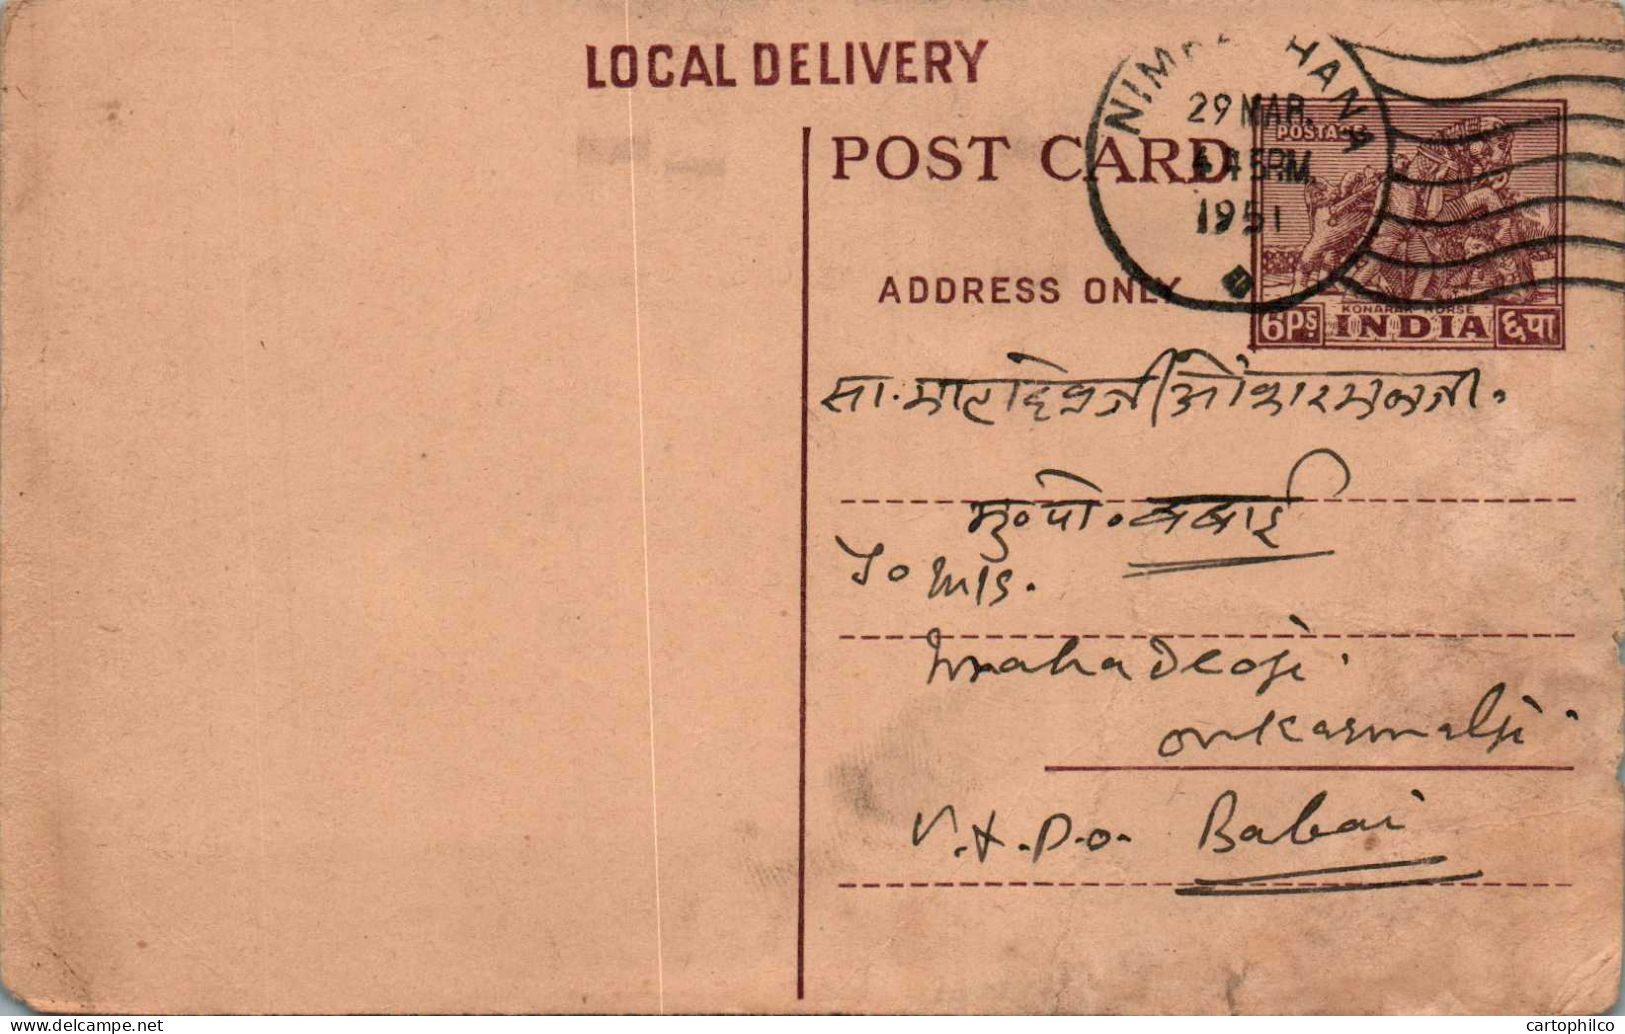 LOCAL DELIVERY
NIM HANA
29 MAR.
4 45 P.M.
1951
POST CARD
POSTAGE
ADDRESS ONLY
KONARAK HORSE
6Ps. INDIA ६पा
सा. माहादेवजी ओंकारमलजी.
मु. पो. बबाई
To M/S.
Mahadeoji.
Onkarmalji.
V. & P.O. Babai
www.delcampe.net
cartophilco